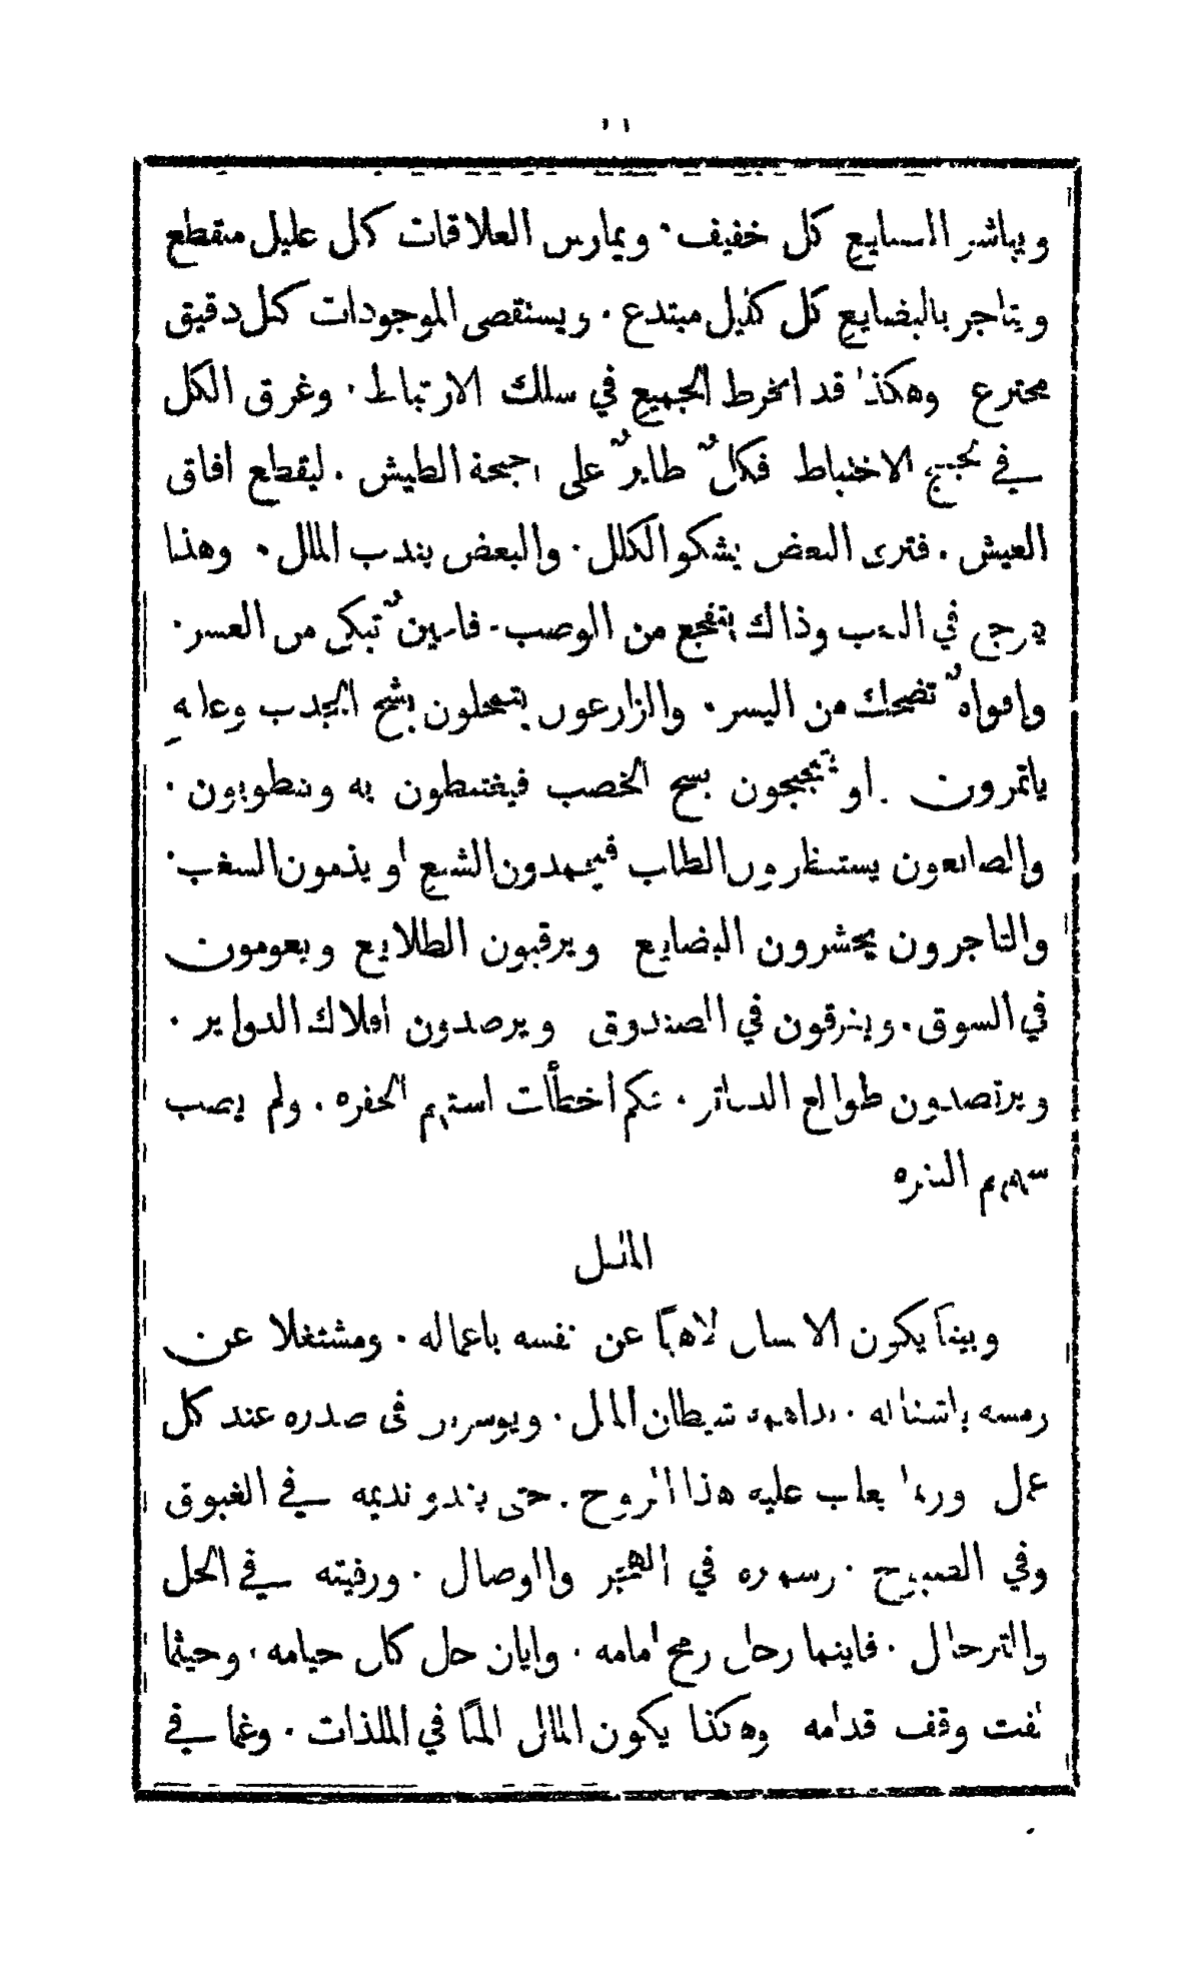 ويباشر الصنايع كل خفيف. ويمارس العلاقات كل عليل منقطع
ويتاجر بالبضايع كل كليل مبتدع. ويستقصى الموجودات كل دقيق
مخترع وهكذا قد انخرط الجميع في سلك الارتباط. وغرق الكل
في لجج الاختباط فكلٌ طايرٌ على اجنحة الطيش. ليقطع افاق
العيش. فترى البعض يشكو الكلل. والبعض يندب الملل. وهذا
في وذاك يتفجع من الوصب. تبكي من العسر.
وافواهٌ تضحك من اليسر. والزارعون يتمحلون بشح الجدب وعليهِ
ياتمرون. او يتبجبجون بسح الخصب فيغتبطون به وينطوبون.
والصانعون الطلب فيحمدون الشبع او يذمون السغب.
والتاجرون يحشرون البضايع ويرقبون الطلايع ويعومون
في السوق. وينزقون في الصندوق ويرصدون افلاك الدواير.
ويرتصدون طوالع الدفاتر. فكم اخطأت استهم الحفره. ولم يصب
سهمهم النقره
الملل
وبينما يكون الانسان لاهيًا عن نفسه باعماله. ومشتغلا عن
رمسه باشغاله. داهمه شيطان الملل. ويوسوس فى صدره عند كل
عمل وربما يغلب عليه هذا الروح. حتى يغدو نديمه في الغبوق
وفي الصبوح. وسميره في الهجر والوصال. ورفيقه في الحل
والترحال. فاينما رحل رمح امامه. وايان حل كان خيامه. وحيثما
لفت وقف قدامه وهكذا يكون الملل الما في الملذات. وغما في